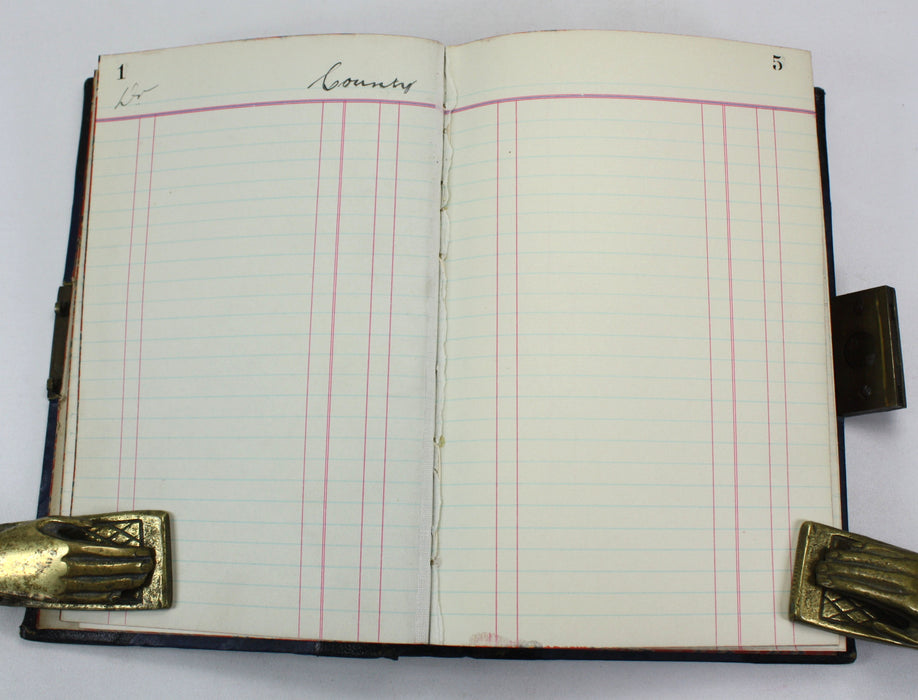 1
Dr County
5